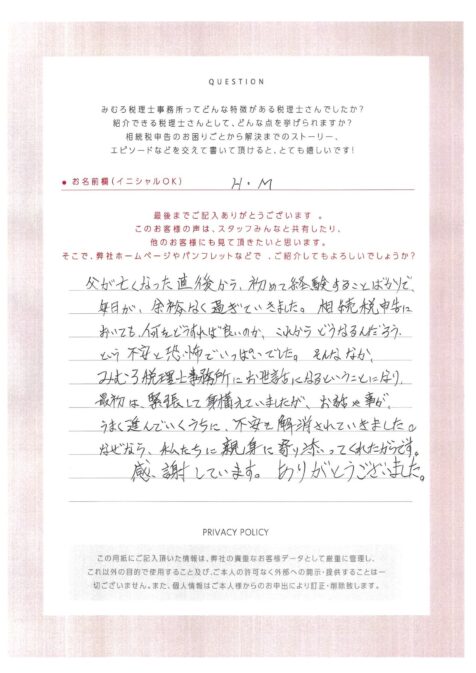 QUESTION
みむろ税理士事務所ってどんな特徴がある税理士さんでしたか?
紹介できる税理士さんとして、どんな点を挙げられますか?
相続税申告のお困りごとから解決までのストーリー、
エピソードなどを交えて書いて頂けると、とても嬉しいです!
● お名前欄(イニシャルOK) H.M
最後までご記入ありがとうございます 。
このお客様の声は、スタッフみんなと共有したり、
他のお客様にも見て頂きたいと思います。
そこで、弊社ホームページやパンフレットなどで 、ご紹介してもよろしいでしょうか?
父が亡くなった直後から、初めて経験することばかりで、
毎日が、余裕なく過ぎていきました。相続税申告に
おいても、何をどうすれば良いのか、これからどうなるんだろう、
という不安と恐怖でいっぱいでした。そんななか、
みむろ税理士事務所にお世話になるということになり、
最初は、緊張して身構えていましたが、お話や事が、
うまく進んでいくうちに、不安も解消されていきました。
なぜなら、私たちに親身に寄り添ってくれたからです。
感謝しています。ありがとうございました。
PRIVACY POLICY
この用紙にご記入頂いた情報は、弊社の貴重なお客様データとして厳重に管理し、
これ以外の目的で使用すること及び、ご本人の許可なく外部への開示・提供することは一
切ございません。また、個人情報はご本人様からのお申出により訂正・削除致します。